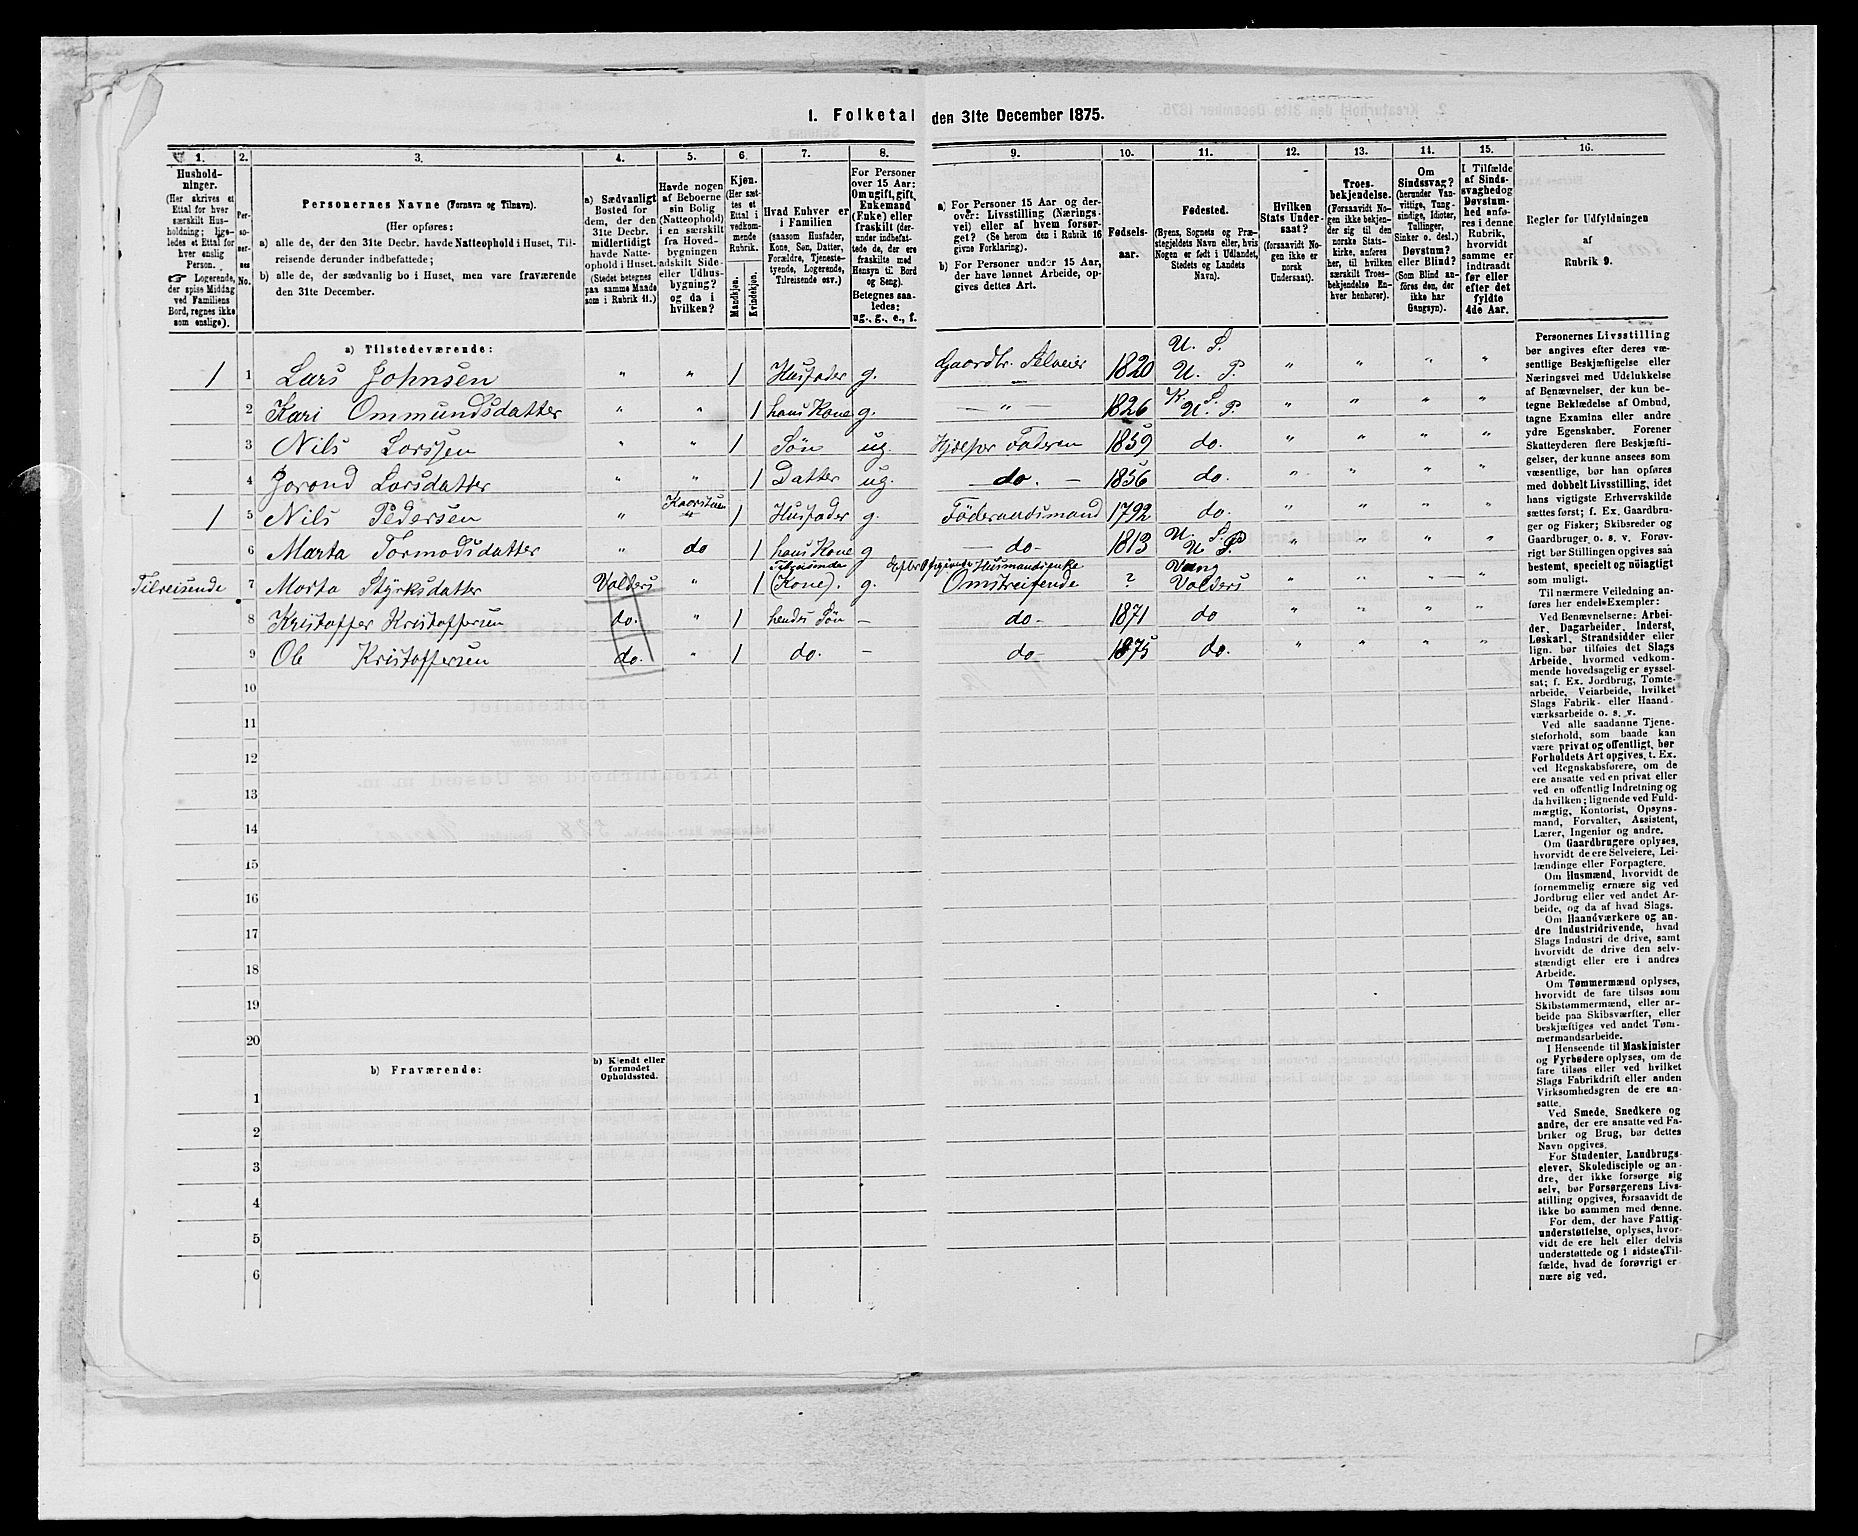 1. Folketal den 31te December 1875.
1.
2.
3.
4.
5.
6.
7.
8.
9.
10.
11.
12.
13.
14.
15.
16.
Hushold-
ninger.
(Her skrives et
Ettal for hver
særskilt Hus-
holdning; lige-
ledes et Ettal for
hver enslig
Person.
☞ Logerende,
der spise Middag
ved Familiens
Bord, regnes ikke
som enslige).
Per-
so-
ner-
nes
No.
Personernes Navne (Fornavn og Tilnavn).
(Her opføres:
a) alle de, der den 31te Decbr. havde Natteophold i Huset, Til-
reisende derunder indbefattede;
b) alle de, der sædvanlig bo i Huset, men vare fraværende
den 31te December.
a) Sædvanligt
Bosted for
dem, der den
31te Decbr.
midlertidigt
havde Natte-
ophold i Huset.
(Stedet betegnes
paa samme Maade
som i Rubrik 11.)
Havde nogen
af Beboerne
sin Bolig
(Natteophold)
i en særskilt
fra Hoved-
bygningen
adskilt Side-
eller Udhus-
bygning?
og da i
hvilken?
Kjøn.
(Her sæt-
tes et
Ettal i
vedkom-
mende
Rubrik.
Mandkjøn.
Kvindekjøn.
Hvad Enhver er
i Familien
(saasom Husfader,
Kone, Søn, Datter,
Forældre, Tjeneste-
tyende, Logerende,
Tilreisende osv.)
For Personer
over 15 Aar:
Om ugift, gift,
Enkemand
(Enke) eller
fraskilt (der-
under indbefat-
tede de, der ere
fraskilte med
Hensyn til Bord
og Seng).
Betegnes saa-
ledes:
ug., g., e., f.
a) For Personer 15 Aar og der-
over: Livsstilling (Nærings-
vei) eller af hvem forsør-
get? (Se herom den i Rubrik 16
givne Forklaring).
b) For Personer under 15 Aar,
der have lønnet Arbeide, op-
gives dettes Art.
Fødsels-
aar.
Fødested.
(Byens, Sognets og Præ-
stegjeldets Navn eller, hvis
Nogen er født i Udlandet,
Stedets og Landets
Navn).
Hvilken
Stats Under-
saat?
(forsaavidt No-
gen ikke er
norsk
Undersaat).
Troes-
bekjendelse.
(Forsaavidt No-
gen ikke bekjen-
der sig til den
norske Stats-
kirke, anføres
her, til hvilken
særskilt Troes-
bekjendelse En-
hver henhører).
Om
Sindssvag?
(herunder Van-
vittige, Tung-
sindige, Idioter,
Tullinger,
Sinker o. desl.)
Døvstum?
eller Blind?
(Som Blind an-
føres den, der
ikke har
Gangsyn).
I Tilfælde
af Sinds-
svaghed og
Døvstum-
hed anfø-
res i denne
Rubrik,
hvorvidt
samme er
indtraadt
før eller
efter det
fyldte
4de Aar.
Regler for Udfyldningen
af
Rubrik 9.
a) Tilstedeværende:
1 1 Lars Johnsen " " 1 Husfader g. Gaardbr. Selveier 1820 U. S. U. P. " " " "
2 Kari Ommundsdatter " " 1 hans Kone g. — " — 1826 K. S. U. P. " " " "
3 Nils Larssen " " 1 Søn ug. Hjælper Faderen 1859 do. " " " "
4 Jorand Larsdatter " " 1 Datter ug. — do. — 1856 do. " " " "
1 5 Nils Pedersen " Kaarstuen " 1 Husfader g. Føderaadsmand 1792 do. " " " "
6 Marta Tormodsdatter " do 1 hans Kone g — do — 1813 U. S. U. P. " " " "
Tilreisende 7 Marta Styrksdatter Valders " 1 Tilreisende (Kone). g. efter Opgivende Husmandsenke Omstreifende ? Vang Valders " " " "
8 Kristoffer Kristoffersen do. " 1 hendes Søn — do — 1871 do " " " "
9 Ole Kristoffersen do. " 1 do. — do — 1875 do. " " " "
10
11
12
13
14
15
16
17
18
19
20
b) Fraværende:
b) Kjendt eller
formodet
Opholdssted.
1
2
3
4
5
6
Personernes Livsstilling
bør angives efter deres væ-
sentlige Beskjæftigelse eller
Næringsvei med Udelukkelse
af Benævnelser, der kun be-
tegne Beklædelse af Ombud,
tagne Examina eller andre
ydre Egenskaber. Forener
Skatteyderen flere Beskjæfti-
gelser, der kunne ansees som
væsentlige, bør han opføres
med dobbelt Livsstilling, idet
hans vigtigste Erhvervskilde
sættes først; f. Ex. Gaardbru-
ger og Fisker; Skibsreder og
Gaardbruger o. s. v. Forøv-
rigt bør Stillingen opgives saa
bestemt, specielt og nøiagtigt
som muligt.
Til nærmere Veiledning an-
føres her endel Exempler:
Ved Benævnelserne: Arbei-
der, Dagarbeider, Inderst,
Løskarl, Strandsidder eller
lign. bør tilføies det Slags
Arbeide, hvormed vedkom-
mende hovedsagelig er syssel-
sat; f. Ex. Jordbrug, Tomte-
arbeide, Veiarbeide, hvilket
Slags Fabrik- eller Haand-
værksarbeide o. s. v.
Ved alle saadanne Tjene-
steforhold, som baade kan
være privat og offentligt, bør
Forholdets Art opgives, t. Ex.
ved Regnskabsførere, om de
ere ansatte ved en privat eller
ved en offentlig Indretning og
da hvilken; lignende ved Fuld-
mægtig, Kontorist, Opsyns-
mand, Forvalter, Assistent,
Lærer, Ingeniør og andre.
Om Gaardbrugere oplyses,
hvorvidt de ere Selveiere, Lei-
lændinge eller Forpagtere.
Om Husmænd, hvorvidt de
fornemmelig ernære sig ved
Jordbrug eller ved andet Ar-
beide, og da af hvad Slags.
Om Haandværkere og an-
dre Industridrivende, hvad
Slags Industri de drive, samt
hvorvidt de drive den selv-
stændigt eller ere i andres
Arbeide.
Om Tømmermænd oplyses,
hvorvidt de fare tilsøs som
Skibstømmermænd, eller ar-
beide paa Skibsværfter, eller
beskjæftiges ved andet Tøm-
mermandsarbeide.
I Henseende til Maskinister
og Fyrbødere oplyses, om de
fare tilsøs eller ved hvilket
Slags Fabrikdrift eller anden
Virksomhedsgren de ere an-
satte.
Ved Smede, Snedkere og
andre, der ere ansatte ved Fa-
briker og Brug, bør dettes
Navn opgives.
For Studenter, Landbrugs-
elever, Skoledisciple og an-
dre, der ikke forsørge sig
selv, bør Forsørgerens Livs-
stilling opgives, forsaavidt de
ikke bo sammen med denne.
For dem, der have Fattig-
understøttelse, oplyses, hvor-
vidt de ere helt eller delvis
understøttede og i sidste Til-
fælde, hvad de forøvrigt er-
nære sig ved.